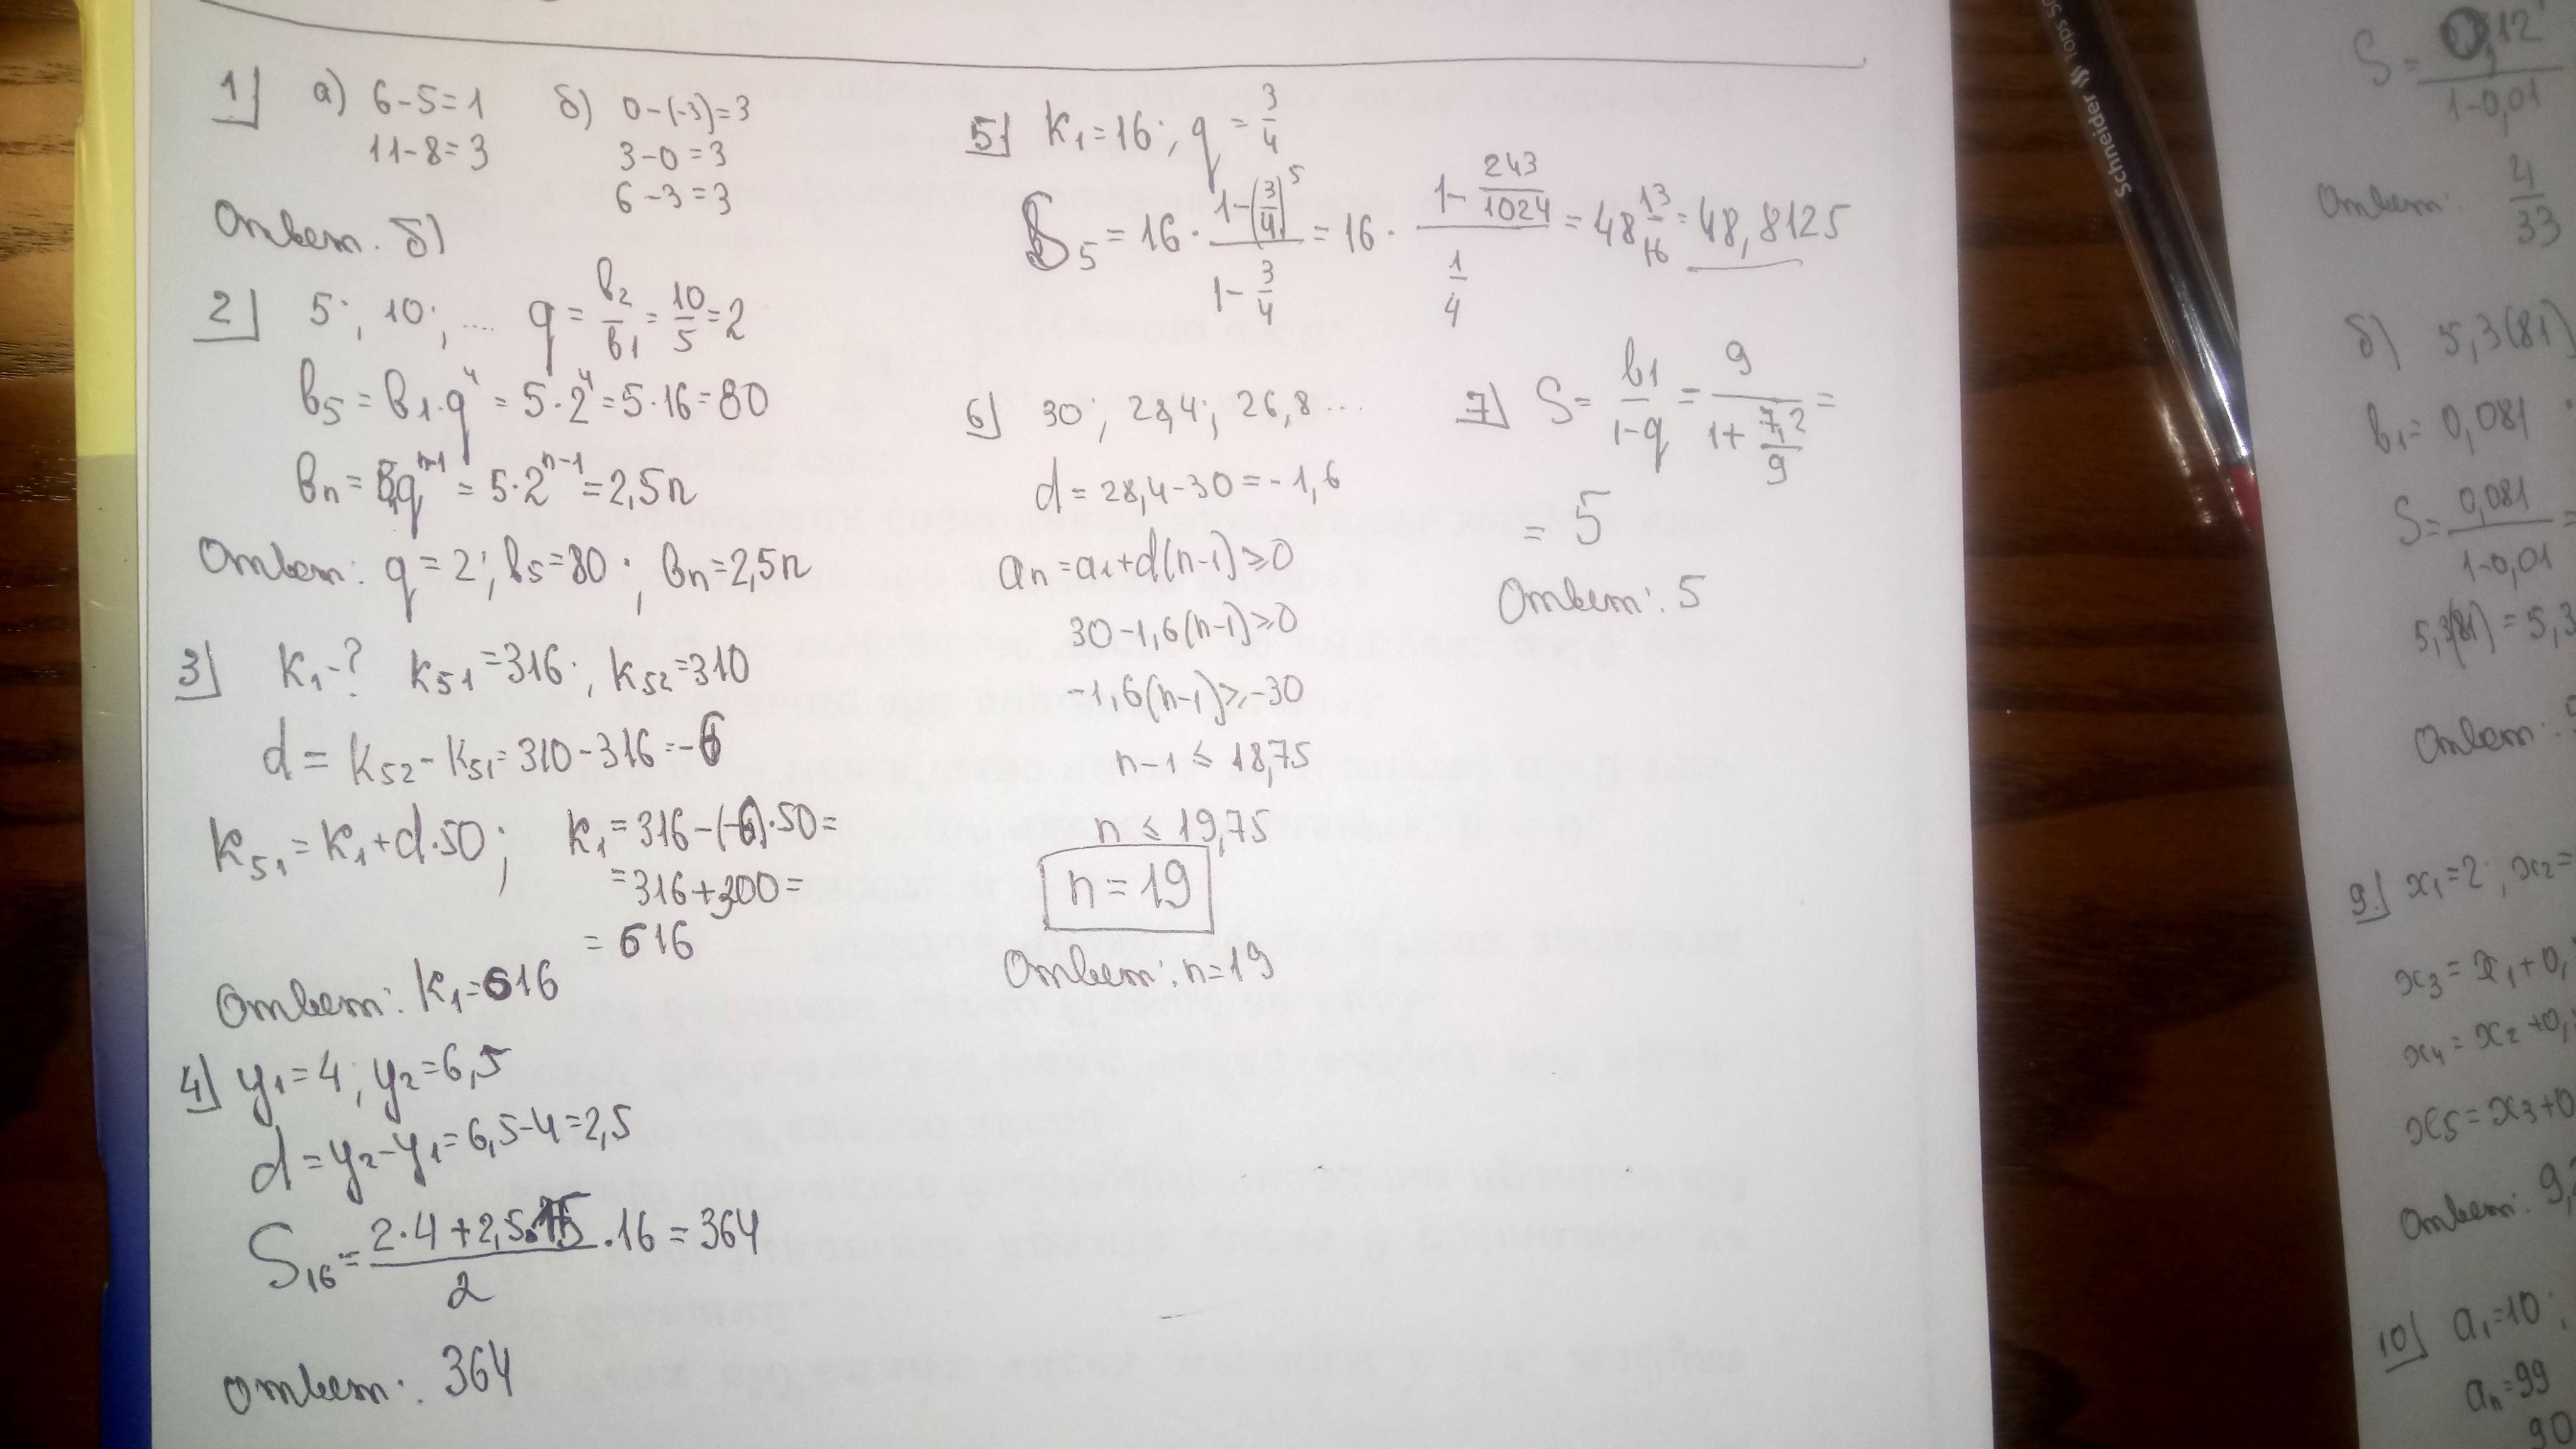 1) а) 6-5=1
11-8=3
б) 0-(-3)=3
3-0=3
6-3=3
Ответ. б)
2) 5; 10; .... q = в₂/в₁ = 10/5 = 2
в₅ = в₁·q⁴ = 5·2⁴ = 5·16 = 80
вₙ = в₁qⁿ⁻¹ = 5·2ⁿ⁻¹ = 2,5n
Ответ: q = 2; в₅=80; вₙ=2,5n
3) К₁-? К₅₁=316; К₅₂=310
d = К₅₂-К₅₁=310-316=-6
К₅₁=К₁+d·50; К₁=316-(-6)·50=
=316+300=
= 616
Ответ: К₁=616
4) y₁=4; y₂=6,5
d=y₂-y₁=6,5-4=2,5
S₁₆ = (2·4+2,5·15)/2 ·16 = 364
Ответ: 364
5) К₁=16; q = 3/4
S₅ = 16 · (1-(3/4)⁵)/(1-3/4) = 16 · (1-243/1024)/(1/4) = 48 13/16 = 48,8125
6) 30; 28,4; 26,8 ...
d = 28,4-30 = -1,6
aₙ = a₁+d(n-1)≥0
30-1,6(n-1)≥0
-1,6(n-1)≥-30
n-1 ≤ 18,75
n ≤ 19,75
n = 19
Ответ: n=19
7) S = в₁/(1-q) = 9/(1+7,2/9) =
= 5
Ответ: 5
Schneider Tops 50
S = 0,12/(1-0,01)
Ответ: 4/33
б) 5,3(81)
в₁= 0,081
S= 0,081/(1-0,01) =
5,3(81) = 5,3
Ответ:
9) x₁=2; x₂=
x₃ = x₁+0,
x₄ = x₂+0,
x₅ = x₃+0
Ответ: 9,
10) a₁=10;
aₙ=99
90